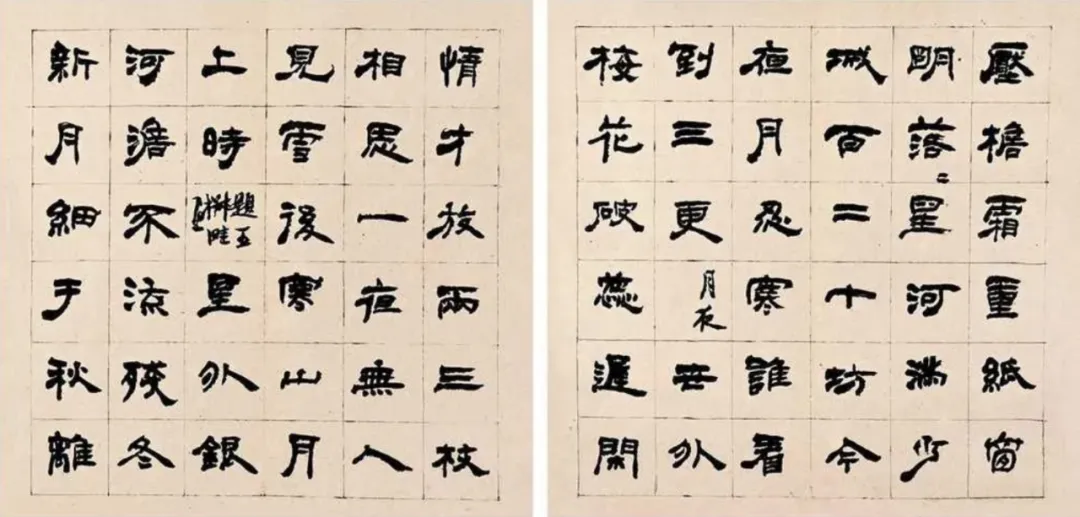 壓檐霜重紙窗
明落〻星河滿少
城百二十坊今
夜月忍寒誰看
到三更月夜世外
梅花破蕊遲閑
情才放兩三枝
相思一夜無人
見雪後寒山月
上時題五星外銀
河澹不流殘冬
新月細于秋離